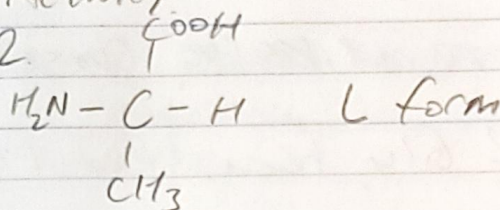 2. COOH
H₂N - C - H L form
CH₃